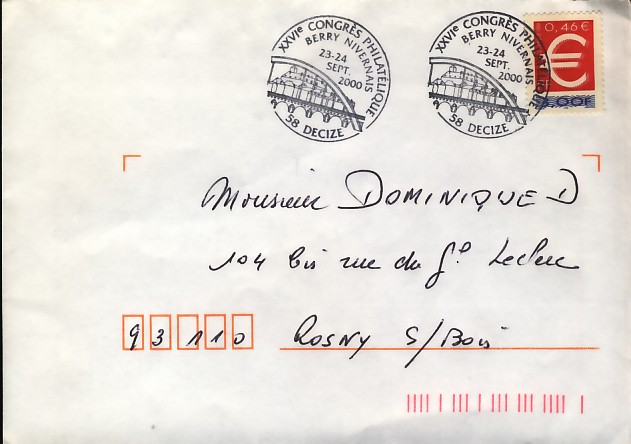 XXVIe CONGRÈS PHILATÉLIQUE
BERRY NIVERNAIS
23-24
SEPT.
2000
58 DECIZE
XXVIe CONGRÈS PHILATÉLIQUE
BERRY NIVERNAIS
23-24
SEPT.
2000
58 DECIZE
0,46 €
€
3,00F
Monsieur DOMINIQUE D
104 bis rue du Gl Leclerc
93110 ROSNY S/Bois